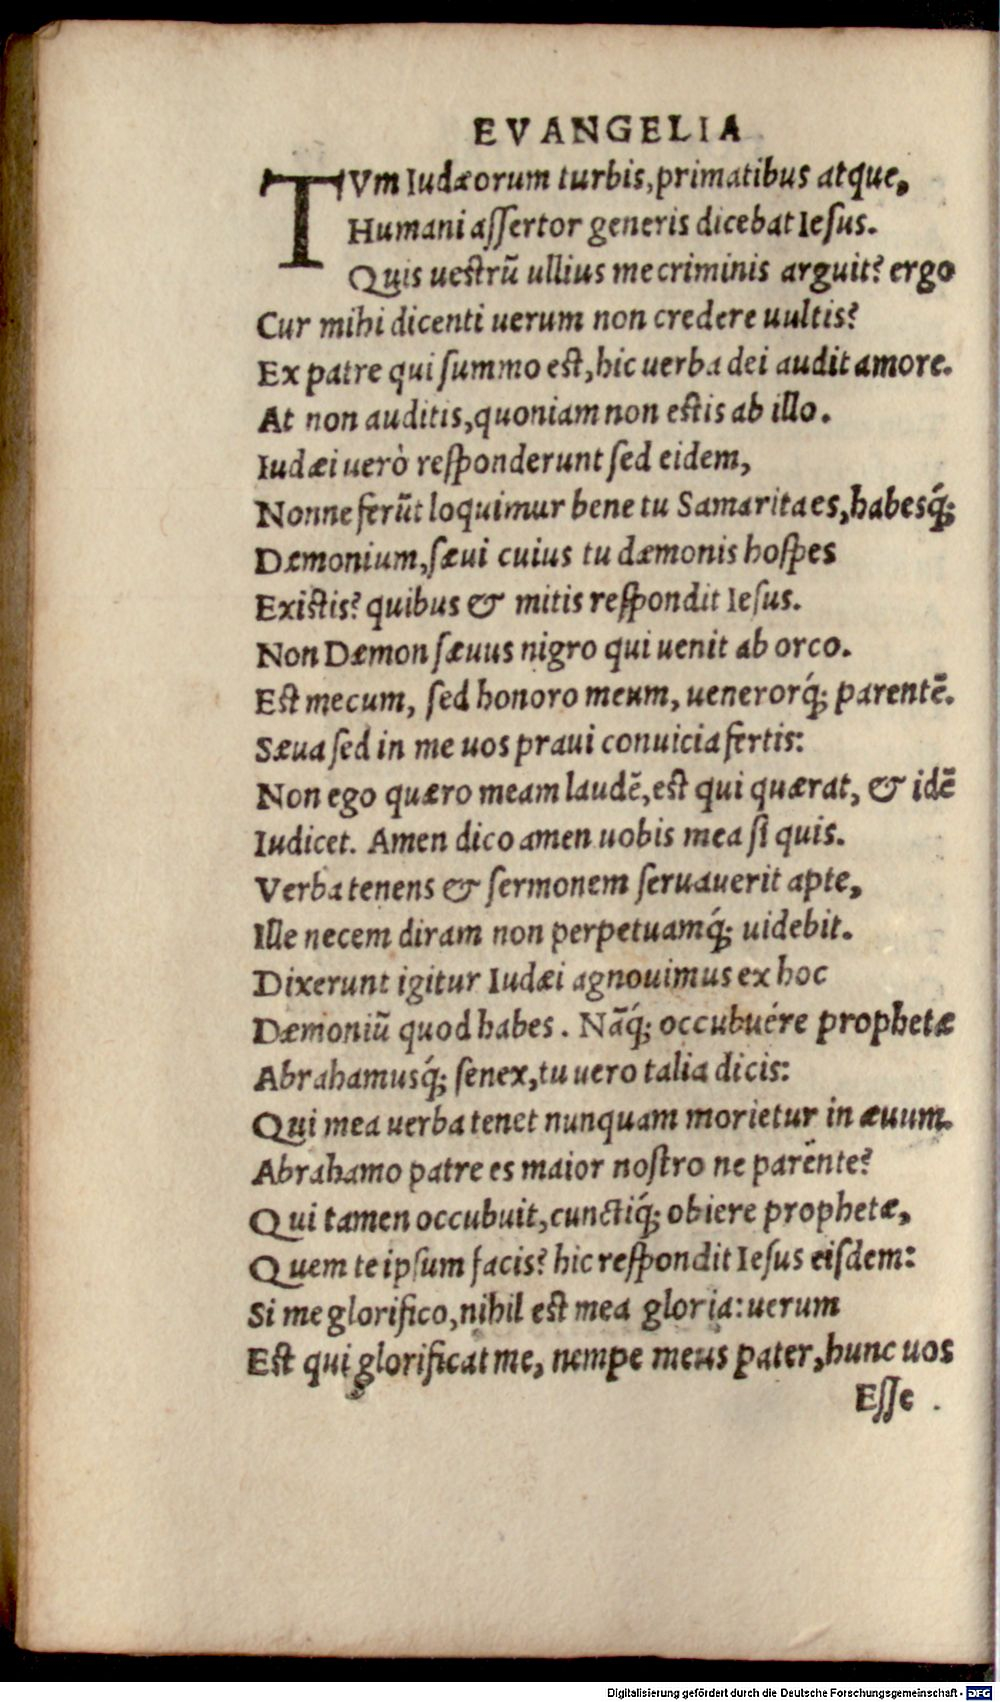 EVANGELIA
TVm Iudæorum turbis, primatibus atque,
Humani aſſertor generis dicebat Ieſus.
Quis ueſtrū ullius me criminis arguit? ergo
Cur mihi dicenti uerum non credere uultis?
Ex patre qui ſummo eſt, hic uerba dei audit amore.
At non auditis, quoniam non eſtis ab illo.
Iudæi uerò reſponderunt ſed eidem,
Nonne ferūt loquimur bene tu Samarita es, habesq́;
Dæmonium, ſæui cuius tu dæmonis hoſpes
Exiſtis? quibus & mitis reſpondit Ieſus.
Non Dæmon ſæuus nigro qui uenit ab orco.
Eſt mecum, ſed honoro meum, uenerorq́; parentē.
Sæua ſed in me uos praui conuicia fertis:
Non ego quæro meam laudē, eſt qui quærat, & idē
Iudicet. Amen dico amen uobis mea ſi quis.
Verba tenens & ſermonem ſeruauerit apte,
Ille necem diram non perpetuamq́; uidebit.
Dixerunt igitur Iudæi agnouimus ex hoc
Dæmoniū quod habes. Nāq́; occubuére prophetæ
Abrahamusq́; ſenex, tu uero talia dicis:
Qui mea uerba tenet nunquam morietur in æuum.
Abrahamo patre es maior noſtro ne parénte?
Qui tamen occubuit, cunctiq́; obiere prophetæ,
Quem te ipſum facis? hic reſpondit Ieſus eiſdem:
Si me glorifico, nihil eſt mea gloria: uerum
Eſt qui glorificat me, nempe meus pater, hunc uos
Eſſe .
Digitalisierung gefördert durch die Deutsche Forschungsgemeinschaft - DFG